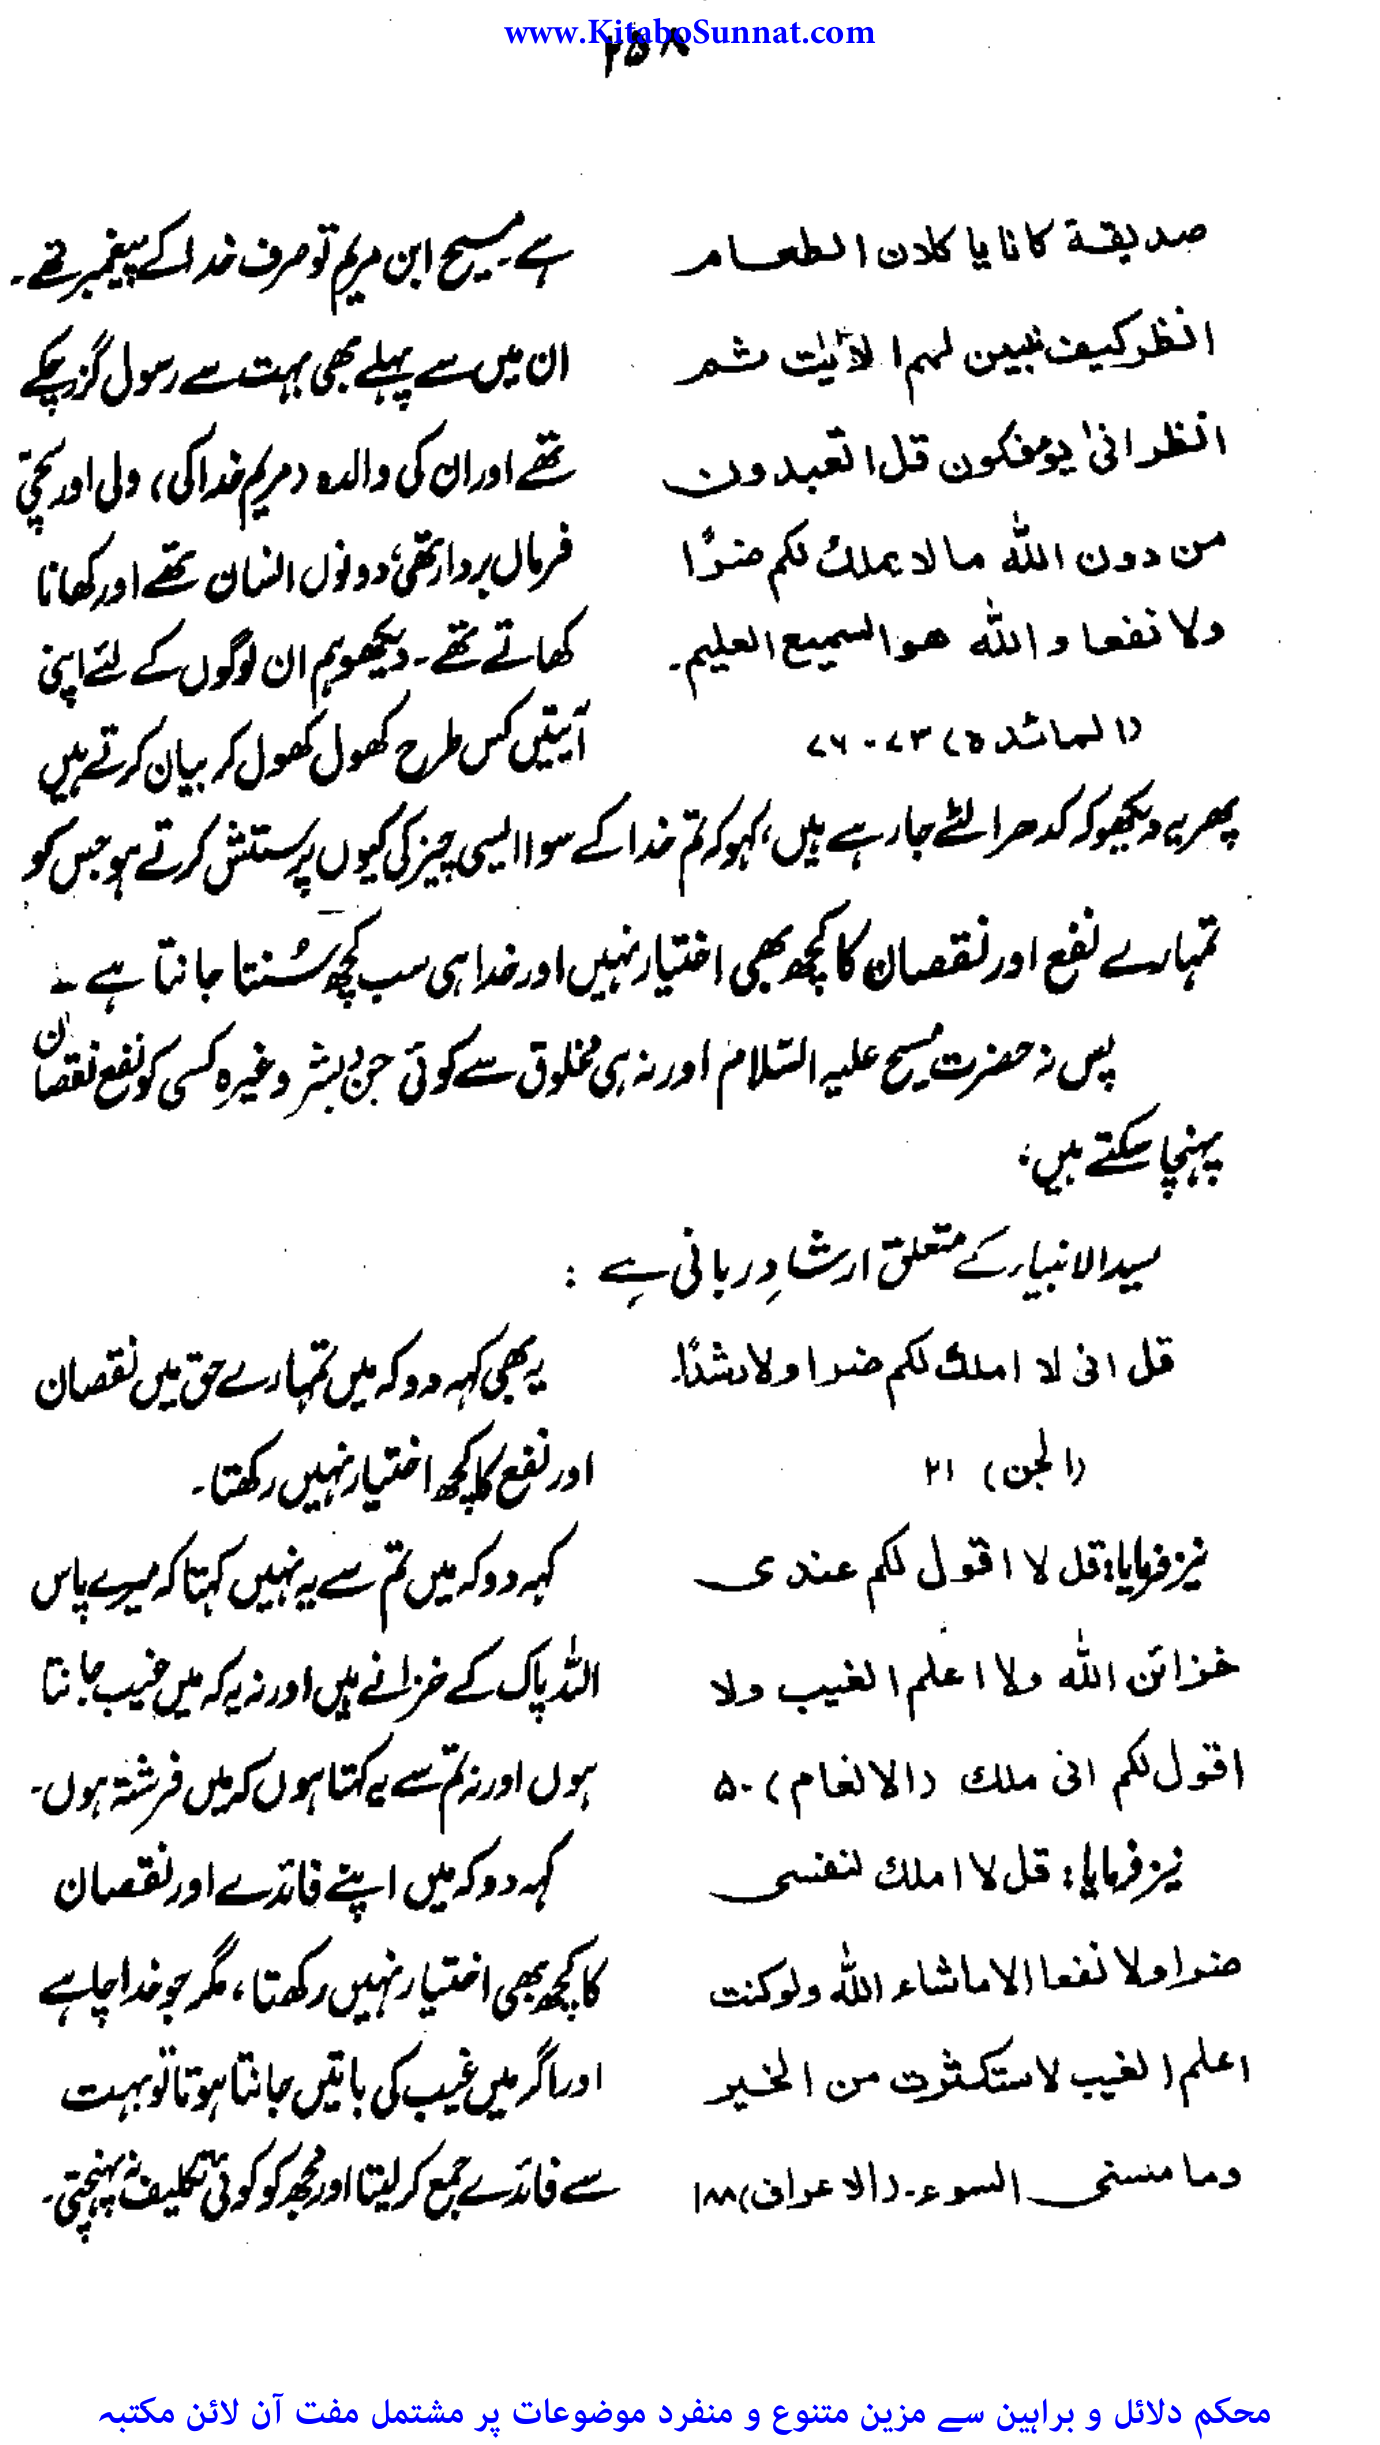 www.KitaboSunnat.com
۲۵۸
صدیقة کانا یاکلان الطعام
انظر کیف نبین لہم الآیٰت ثم
انظر انیٰ یؤفکون قل اتعبدون
من دون اللہ ما لا یملک لکم ضرًا
ولا نفعا واللہ ھو السمیع العلیم۔
(المائدہ ۵) ۷۳-۷۶
ہے۔ مسیح ابن مریم تو صرف خدا کے پیغمبر تھے۔
ان میں سے پہلے بھی بہت سے رسول گزر چکے
تھے اور ان کی والدہ (مریم خدا کی) ولی اور سچی
فرماں بردار تھی، دونوں انسان تھے اور کھانا
کھاتے تھے۔ دیکھو ہم ان لوگوں کے لئے اپنی
آیتیں کس طرح کھول کھول کر بیان کرتے ہیں
پھر یہ دیکھو کہ کدھر الٹے جا رہے ہیں، کہو کہ تم خدا کے سوا ایسی چیز کی کیوں پرستش کرتے ہو جس کو
تمہارے نفع اور نقصان کا کچھ بھی اختیار نہیں اور خدا ہی سب کچھ سُنتا جانتا ہے۔
پس نہ حضرت مسیح علیہ السّلام اور نہ ہی مخلوق سے کوئی جن، بشر وغیرہ کسی کو نفع نقصان
پہنچا سکتے ہیں:
سید الانبیاء کے متعلق ارشادِ ربانی ہے :
قل انی لا املک لکم ضرا ولا رشدًا۔
(الجن) ۲۱
یہ بھی کہہ دو کہ میں تمہارے حق میں نقصان
اور نفع کا کچھ اختیار نہیں رکھتا۔
نیز فرمایا: قل لا اقول لکم عندی
خزائن اللہ ولا اعلم الغیب ولا
اقول لکم انی ملک (الانعام) ۵۰
کہہ دو کہ میں تم سے یہ نہیں کہتا کہ میرے پاس
اللہ پاک کے خزانے ہیں اور نہ یہ کہ میں غیب جانتا
ہوں اور نہ تم سے یہ کہتا ہوں کہ میں فرشتہ ہوں۔
نیز فرمایا: قل لا املک لنفسی
ضرا ولا نفعا الا ماشاء اللہ ولو کنت
اعلم الغیب لاستکثرت من الخیر
وما مسنی السوء۔ (الاعراف) ۱۸۸
کہہ دو کہ میں اپنے فائدے اور نقصان
کا کچھ بھی اختیار نہیں رکھتا، مگر جو خدا چاہے
اور اگر میں غیب کی باتیں جانتا ہوتا تو بہت
سے فائدے جمع کر لیتا اور مجھ کو کوئی تکلیف نہ پہنچتی۔
محکم دلائل و براہین سے مزین متنوع و منفرد موضوعات پر مشتمل مفت آن لائن مکتبہ